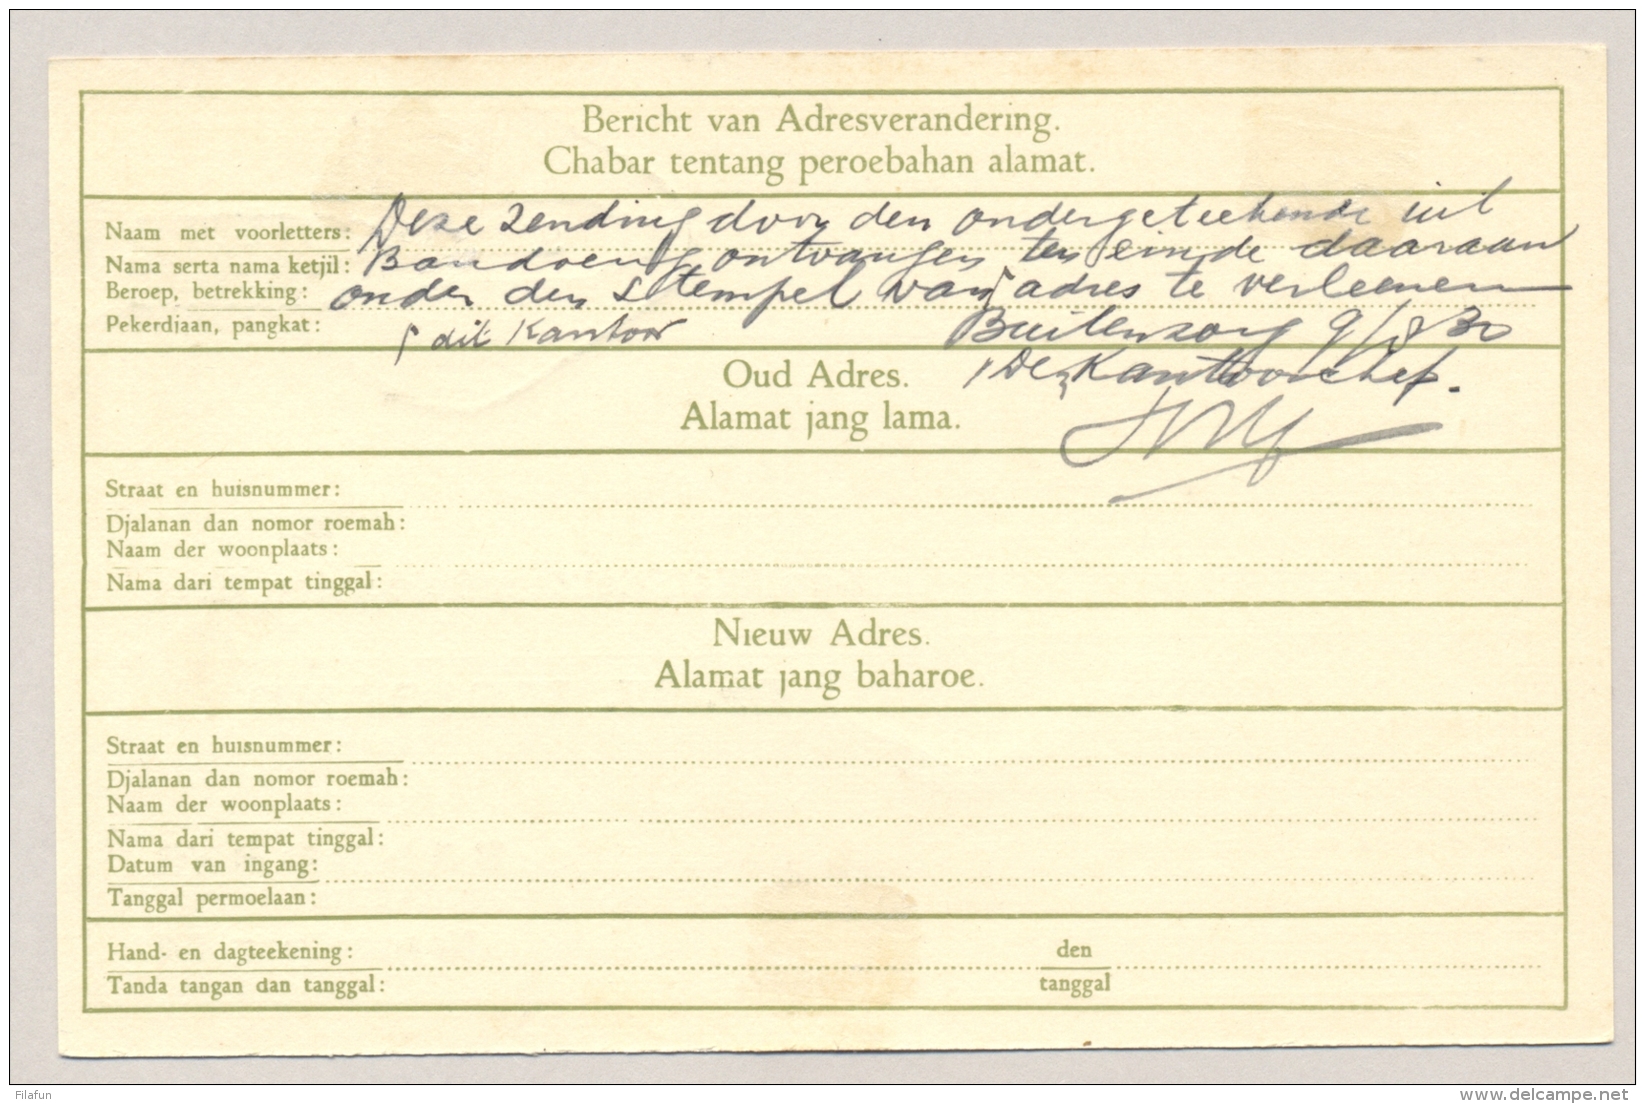 Bericht van Adresverandering.
Chabar tentang peroebahan alamat.
Naam met voorletters: Deze zending door den ondergeteekende uit
Nama serta nama ketjil: Bandoeng ontvangen ten einde daaraan
Beroep, betrekking: onder den stempel van ┌ adres te verleenen
Pekerdjaan, pangkat: ┌ dit kantoor Buitenzorg 9/8 30
Oud Adres. De Kantoorchef.
Alamat jang lama.
Straat en huisnummer:
Djalanan dan nomor roemah:
Naam der woonplaats:
Nama dari tempat tinggal:
Nieuw Adres.
Alamat jang baharoe.
Straat en huisnummer:
Djalanan dan nomor roemah:
Naam der woonplaats:
Nama dari tempat tinggal:
Datum van ingang:
Tanggal permoelaan:
Hand- en dagteekening: den
Tanda tangan dan tanggal: tanggal
Filafun
delcampe.net